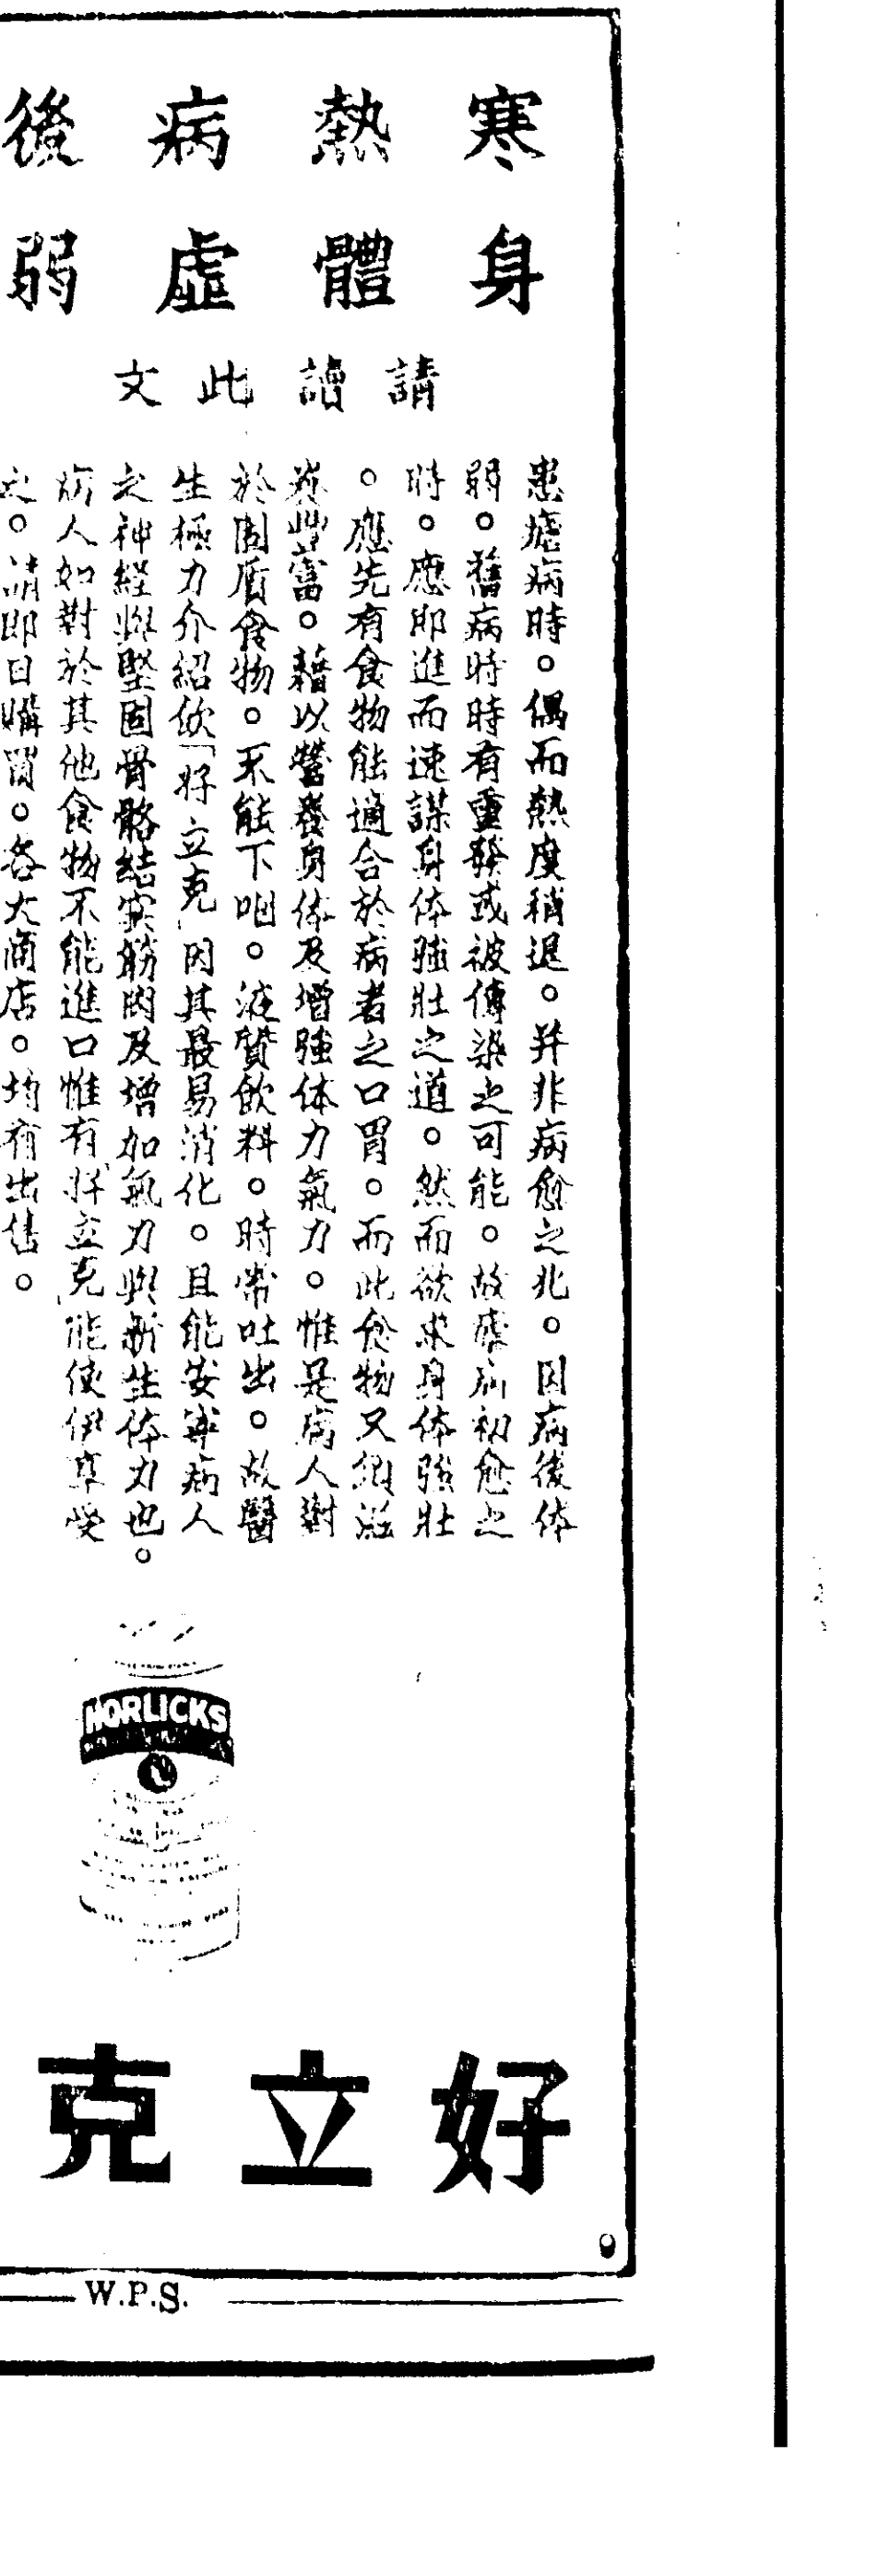 寒熱病後
身體虛弱
請讀此文
患瘧病時。偶而熱度稍退。并非病愈之兆。因病後体
弱。舊病時時有重發或被傳染之可能。故瘧病初愈之
時。應即進而速謀身体強壯之道。然而欲求身体強壯
。應先有食物能適合於病者之口胃。而此食物又須滋
養豐富。藉以營養身体及增強体力氣力。惟是病人對
於固質食物。不能下咽。液質飲料。時常吐出。故醫
生極力介紹飲「好立克」因其最易消化。且能安寧病人
之神経與堅固骨骼結实筋肉及增加氣力與新生体力也。
病人如對於其他食物不能進口惟有好立克能使伊享受
之。請即日購買。各大商店。均有出售。
HORLICKS
好立克
W.P.S.